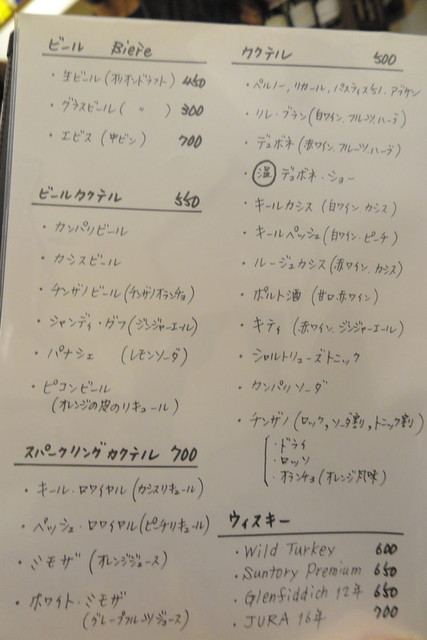 ビール Bière
・生ビール(オリオンドラフト) 450
・グラスビール( 〃 ) 300
・エビス(中ビン) 700
ビールカクテル 550
・カンパリビール
・カシスビール
・チンザノビール(チンザノオランチョ)
・シャンディ・ガフ(ジンジャーエール)
・パナシェ (レモンソーダ)
・ピコンビール
(オレンジの皮のリキュール)
スパークリングカクテル 700
・キール・ロワイヤル(カシスリキュール)
・ペッシェ・ロワイヤル(ピーチリキュール)
・ミモザ(オレンジジュース)
・ホワイト・ミモザ
(グレープフルーツジュース)
カクテル 500
・ペルノー, リカール, パスティス51,
・リレ・ブラン(白ワイン, フルーツ, ハーブ)
・デュボネ(赤ワイン, フルーツ, ハーブ)
・温 デュボネ・ショー
・キールカシス(白ワイン, カシス)
・キールペッシェ(白ワイン・ピーチ)
・ルージュカシス(赤ワイン, カシス)
・ポルト酒 (甘口赤ワイン)
・キティ (赤ワイン, ジンジャーエール)
・シャルトリューズトニック
・カンパリソーダ
・チンザノ(ロック, ソーダ割り, トニック割り)
・ドライ
・ロッソ
・オランチョ(オレンジ風味)
ウィスキー
・Wild Turkey 600
・Suntory Premium 650
・Glenfiddich 12年 650
・JURA 16年 700